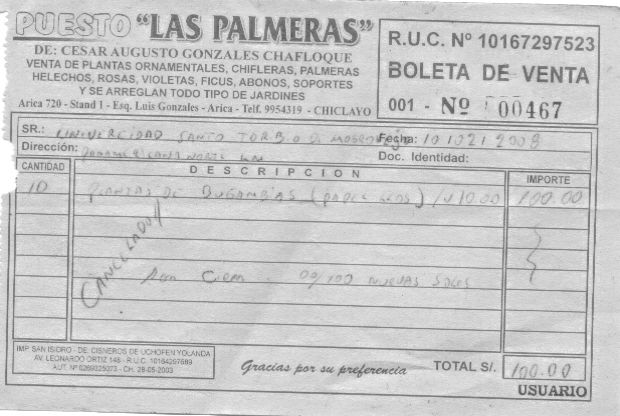 PUESTO "LAS PALMERAS"
DE: CESAR AUGUSTO GONZALES CHAFLOQUE
VENTA DE PLANTAS ORNAMENTALES, CHIFLERAS, PALMERAS
HELECHOS, ROSAS, VIOLETAS, FICUS, ABONOS, SOPORTES
Y SE ARREGLAN TODO TIPO DE JARDINES
Arica 720 - Stand 1 - Esq. Luis Gonzales - Arica - Telf. 9954319 - CHICLAYO
R.U.C. Nº 10167297523
BOLETA DE VENTA
001 - Nº 000467
SR.: UNIVERCIDAD SANTO TORBIO D MOGROVEJO Fecha: 10 1021 2008
Dirección: PANAMERICANA NORTE KM
Doc. Identidad:
CANTIDAD DESCRIPCION IMPORTE
10 PLANTAS DE BUGAMBIAS ( 10.00 100.00
CANCELADO
Son Cien 00/100 NUEVAS SOLES
IMP. SAN ISIDRO - DE: CISNEROS DE UCHOFEN YOLANDA
AV. LEONARDO ORTIZ 148 - R.U.C. 10164267689
AUT. Nº 0269225073 - CH. 28-05-2003
Gracias por su preferencia
TOTAL S/. 100.00
USUARIO